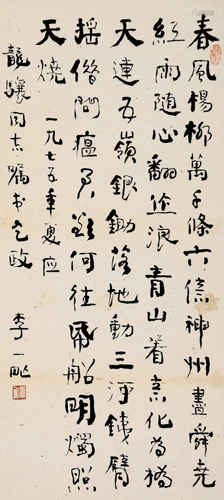 春風楊柳萬千條六億神州盡舜堯
紅雨隨心翻作浪青山着意化為橋
天連五嶺銀鋤落地動三河鐵臂
搖借問瘟君欲何往紙船明燭照
天燒 一九七五年夏應
龍驤同志屬書乞政 李一氓